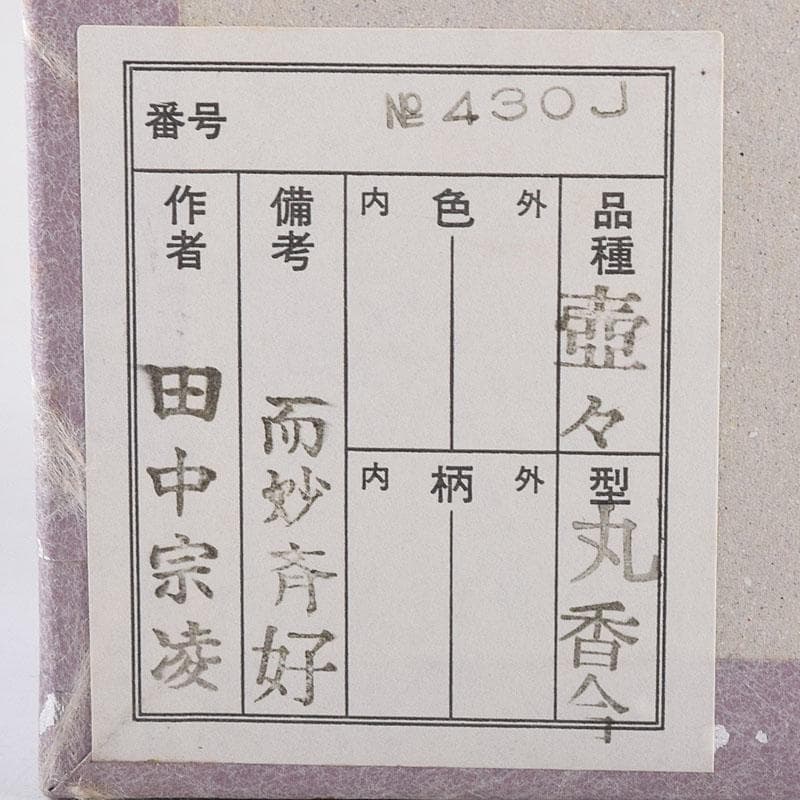 番号 № 430J
品種 壺々
型 丸香今
外 色 内
外 柄 内
備考 而妙斉好
作者 田中宗凌